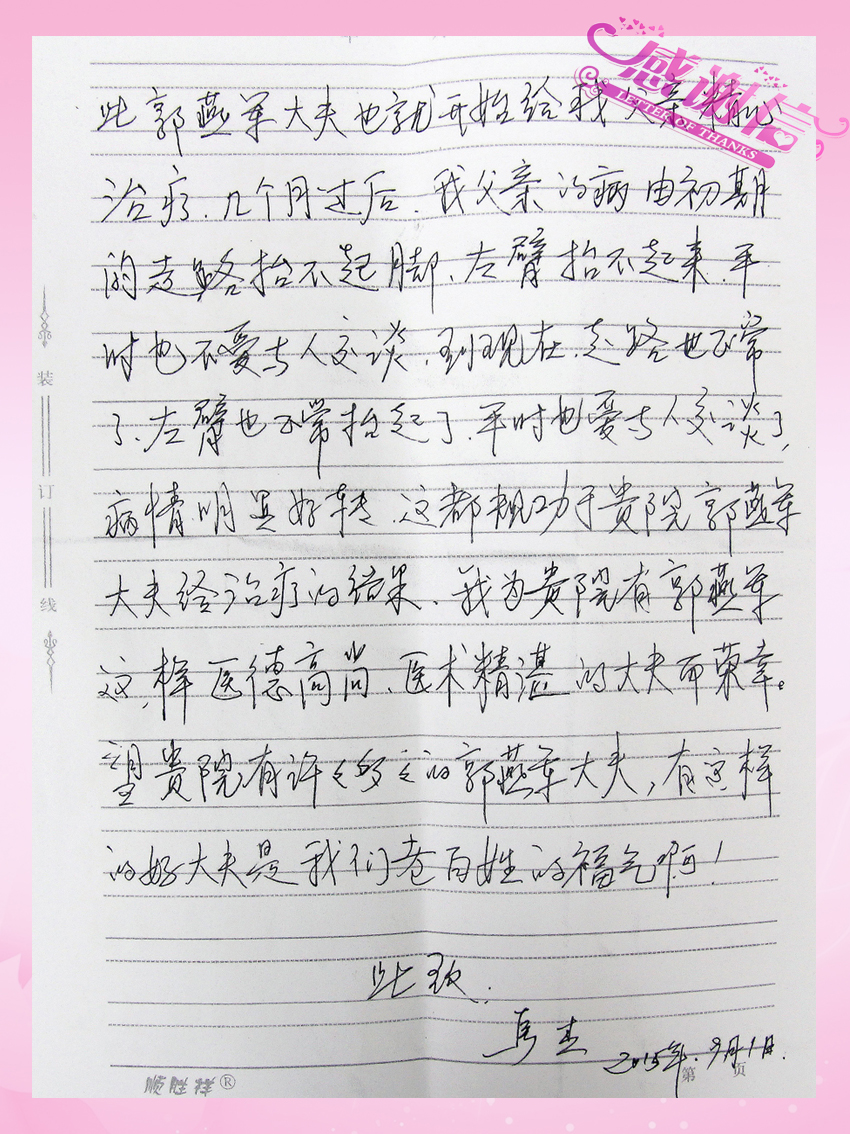 感谢信
LETTER OF THANKS
此郭燕军大夫也就开始给我父亲精心
治疗.几个月过后.我父亲的病由初期
的走路抬不起脚、左臂抬不起来.平
时也不爱与人交谈.到现在.走路也正常
了.左臂也正常抬起了.平时也爱与人交谈了,
病情明显好转.这都归功于贵院郭燕军
大夫经治疗的结果、我为贵院有郭燕军
这样医德高尚、医术精湛的大夫而荣幸。
望贵院有许许多多的郭燕军大夫,有这样
的好大夫是我们老百姓的福气啊!
此致.
马杰
2015年.9月1日.
装
订
线
顺胜祥®
第 页